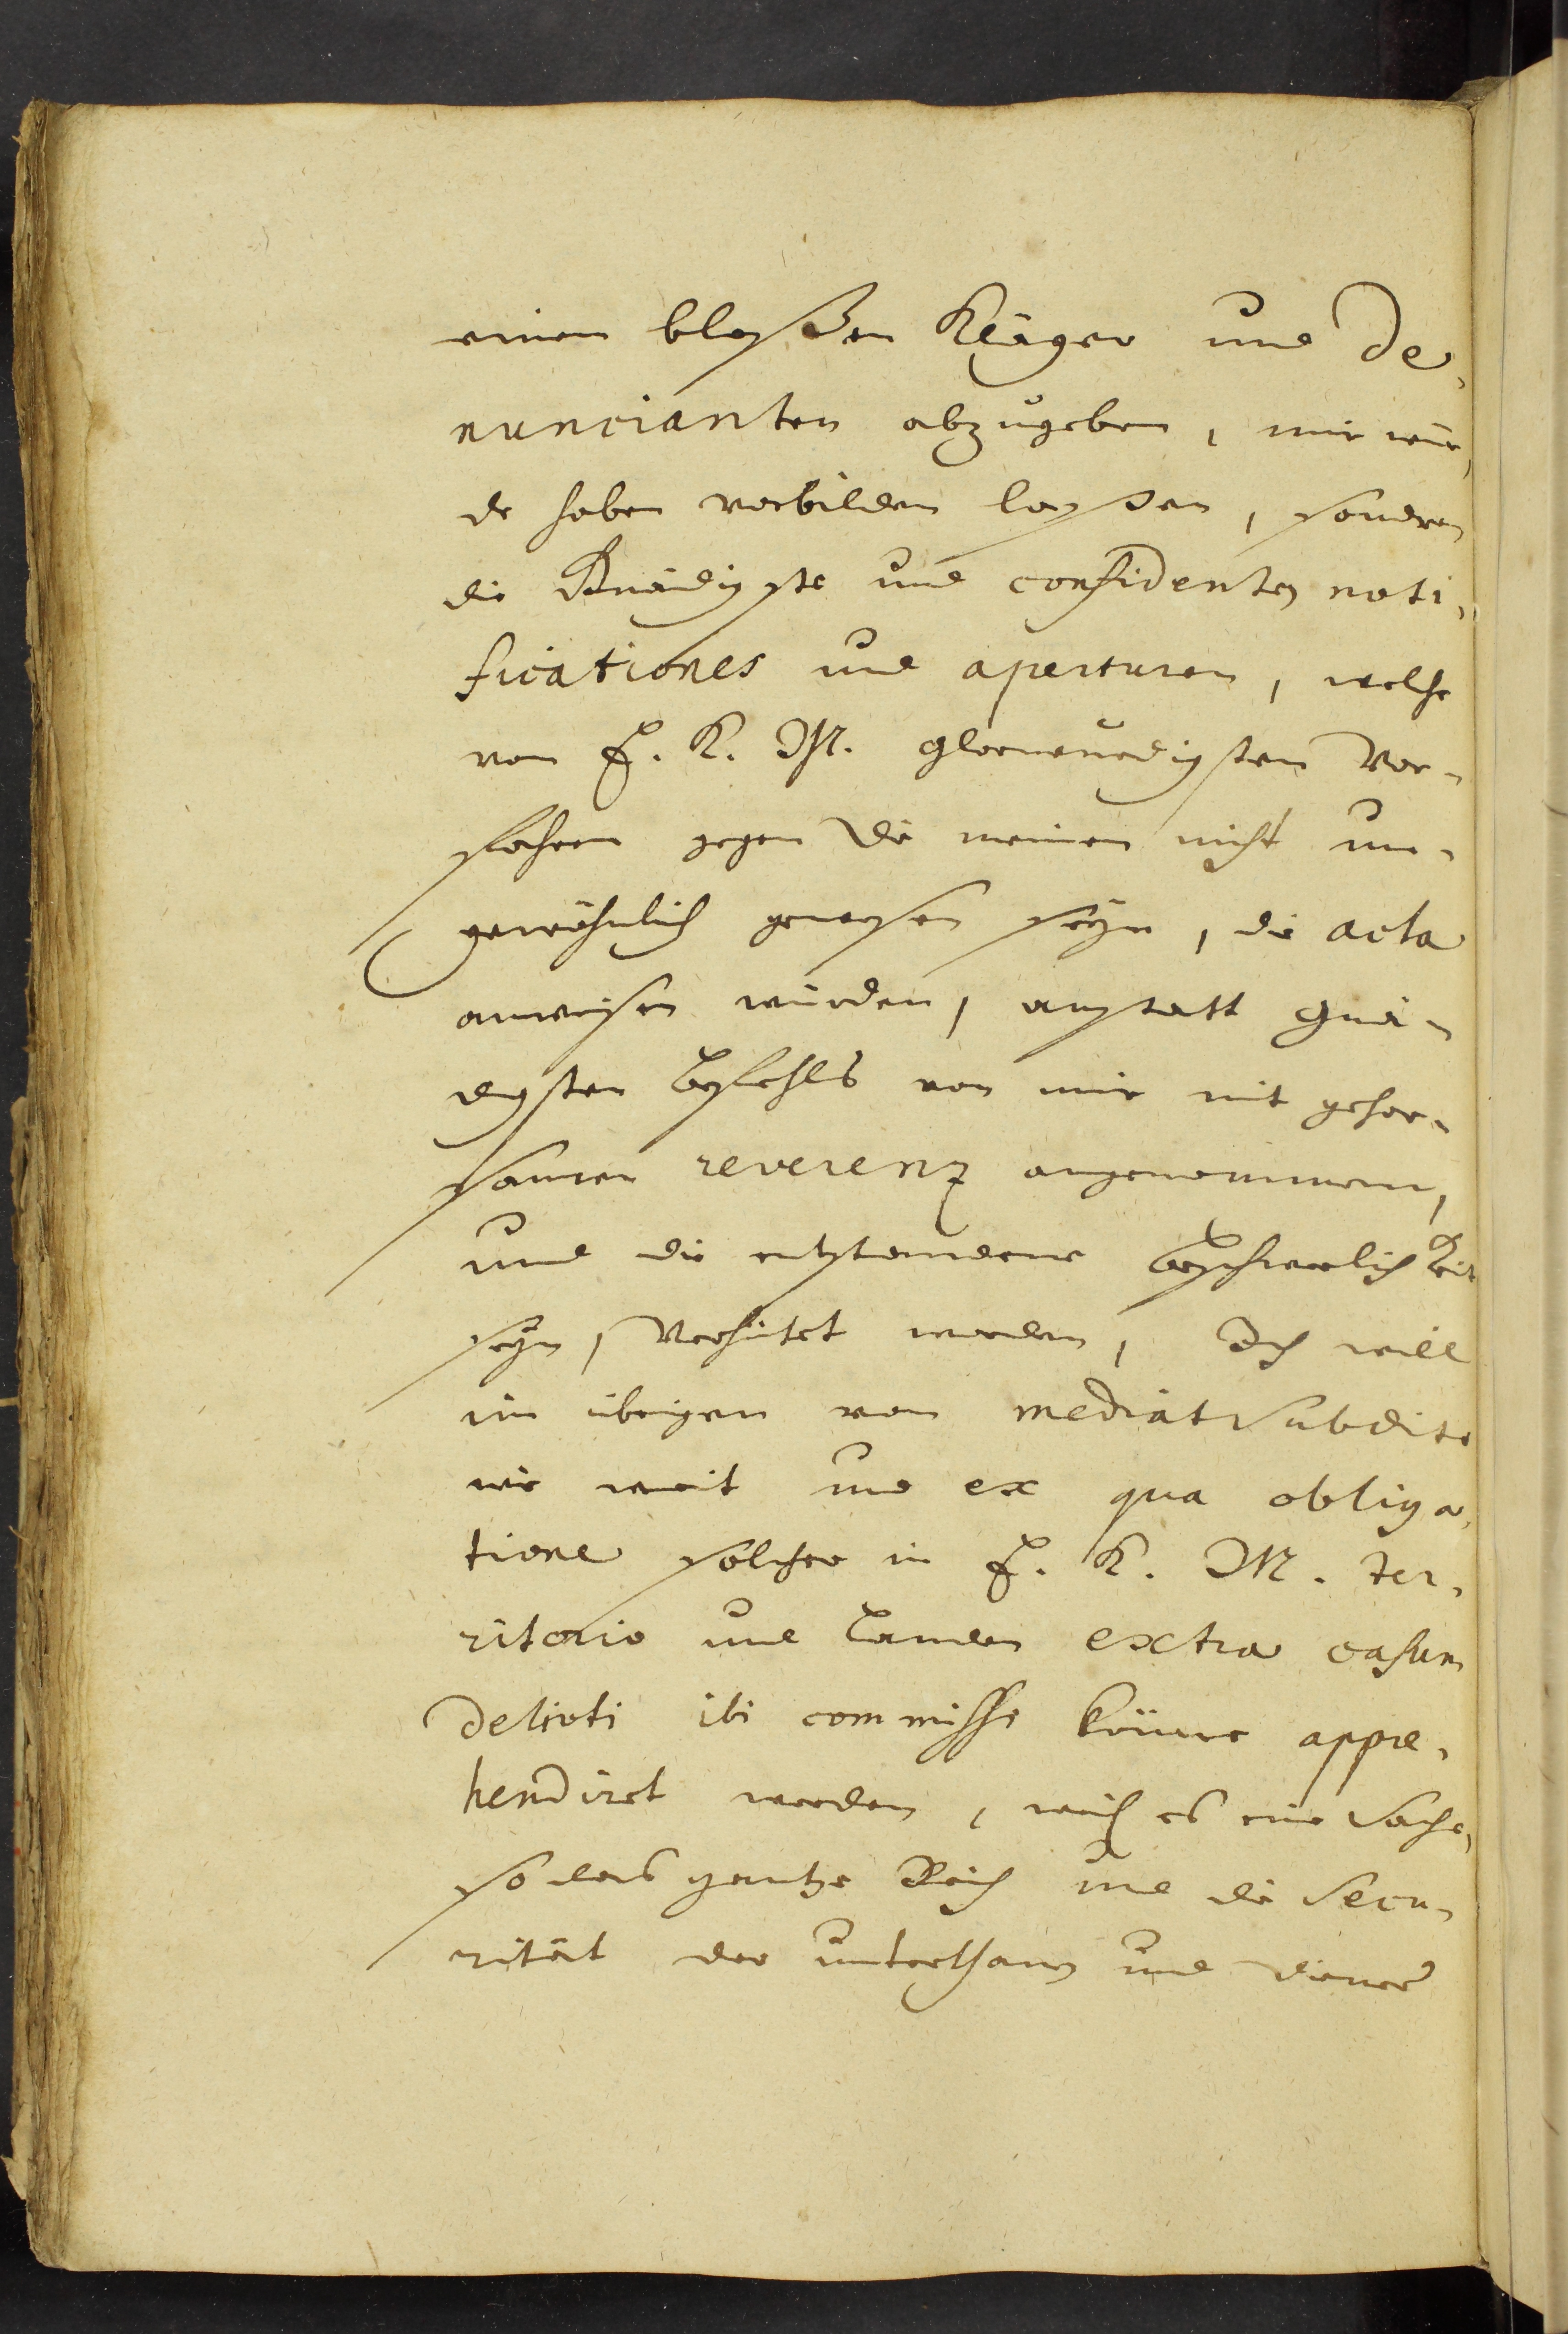 einen bloßen Kläger und De,
nuncianten abzugeben, mir wür,
de haben vorbilden laßen, sondern
die Gnädigste und confidenten noti,
ficationes und aperturen, welche
von E. K. M. glorwürdigsten Vor-
fahren gegen die meinen nicht un-
gewöhnlich gewesen seyn, die acta
anweisen würden, anstatt gnä-
digsten Befehls von mir mit gehor-
samer reverenz angenommen,
und die entstandene Beschwerlichkeit
seyn, verhütet worden, Ich will
im übrigen von mediat Subdito
wie weit und ex qua obliga,
tione solcher in E. K. M. ter,
ritorio und Landen extra casum
delicti ibi commissi könne appre,
hendiret werden, weil es eine Sache,
so das gantze Reich und die Secu-
rität der unterthanen und diener